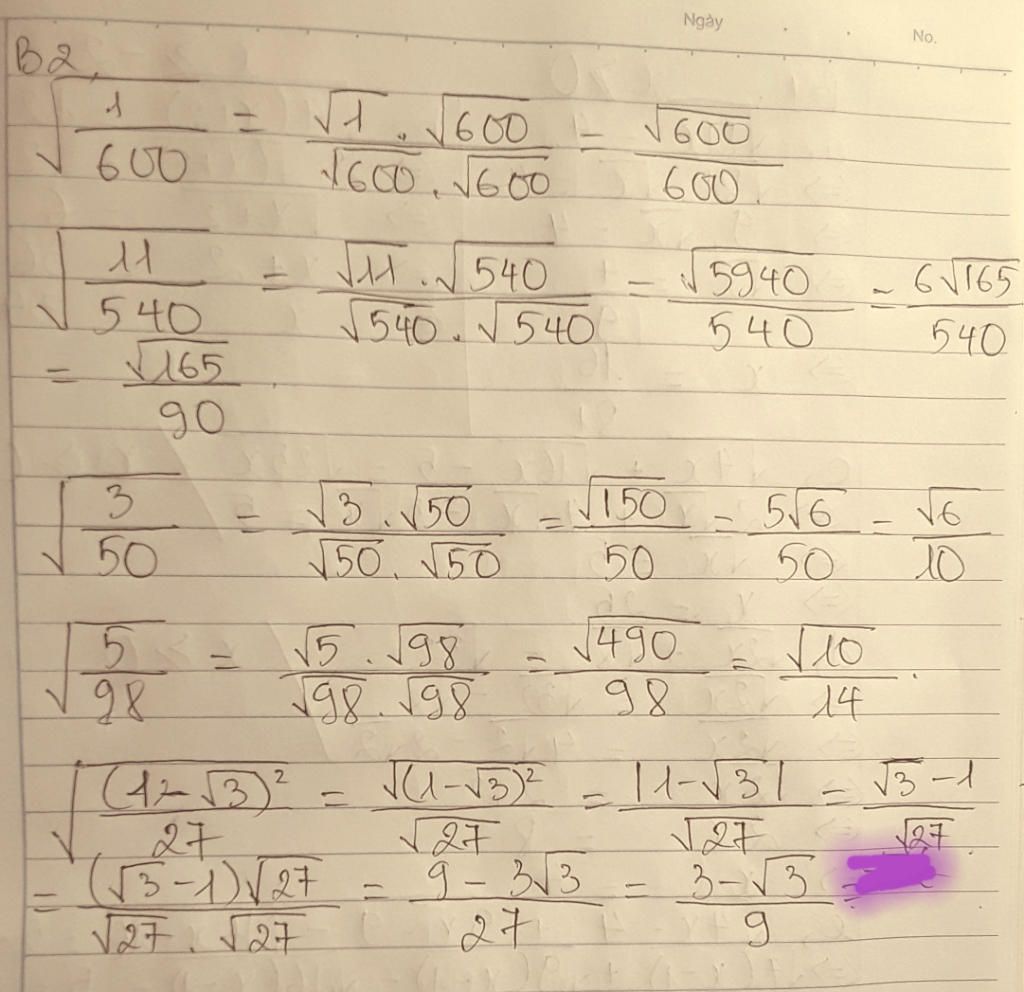 Ngày No.
B2,
√(1/600) = (√1 . √600)/(√600 . √600) = √600/600.
√(11/540) = (√11 . √540)/(√540 . √540) = √5940/540 = 6√165/540
= √165/90 .
√(3/50) = (√3 . √50)/(√50 . √50) = √150/50 = 5√6/50 = √6/10
√(5/98) = (√5 . √98)/(√98 . √98) = √490/98 = √10/14 .
√((1-√3)²/27) = √(1-√3)²/√27 = |1-√3|/√27 = (√3-1)/√27 .
= ((√3-1)√27)/(√27 . √27) = (9-3√3)/27 = (3-√3)/9